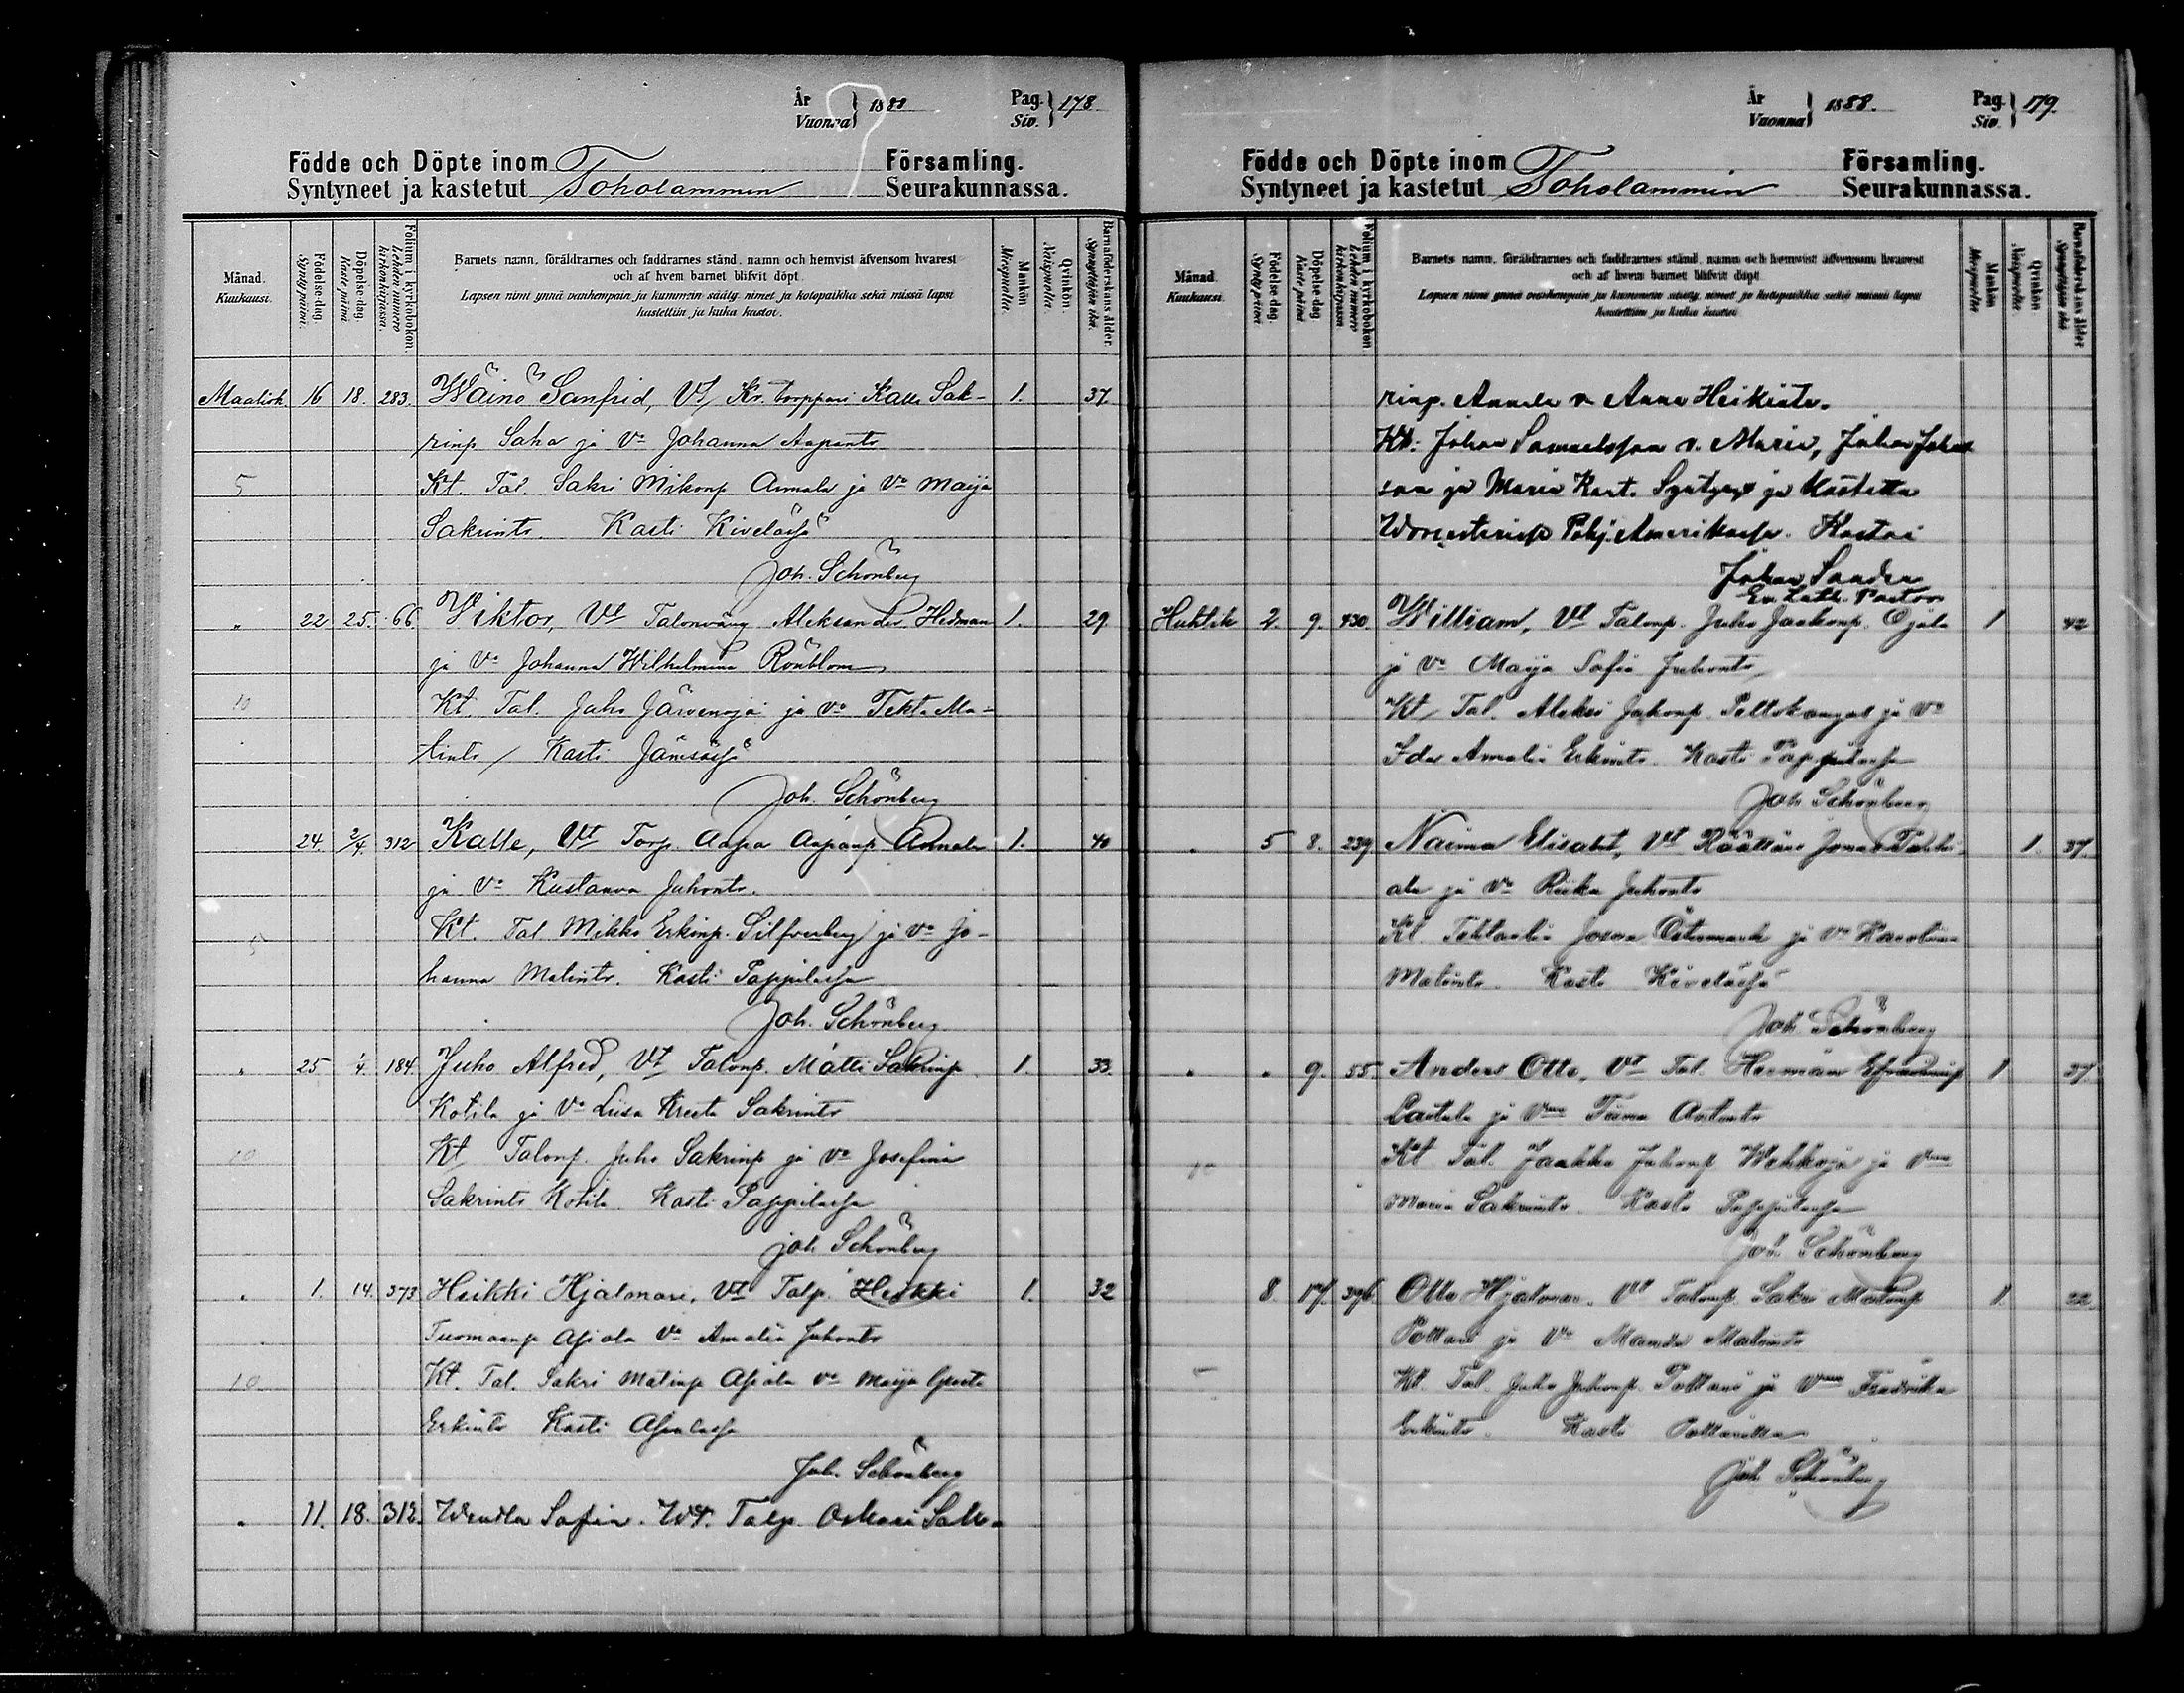 År
Vuonna } 1888
Pag.
Siv. } 178
Födde och Döpte inom Församling.
Syntyneet ja kastetut Toholammin Seurakunnassa.
Månad.
Kuukausi.
Födelse-dag.
Syntypäivä.
Döpelse-dag.
Kaste päivä
Folium i kyrkoboken.
Lehden numero kirkonkirjassa.
Barnets namn, föräldrarnes och faddrarnes stånd, namn och hemvist äfvensom hvarest
och af hvem barnet blifvit döpt.
Lapsen nimi ynnä vanhempain ja kummein sääty, nimet ja kotopaikka sekä missä lapsi
kastettiin ja kuka kastoi.
Mankön.
Miespuolia.
Qvinkön.
Vaispuolia.
Barnaföderskans ålder.
Synnyttäjän ikä.
Maalisk. 16 18. 283. Wäinö Sanfrid, Vt, Kr. torppari Kalle Sak- 1. 37
rinp. Saha ja Vo Johanna Aapontr
5 Kt. Tal. Sakri Mikonp Annala ja Vo Maija
Sakrintr. Kasti Kiveläsä
Joh. Schönberg
" 22 25. 66. Viktor, Vt Talonväng Aleksander Hedman 1. 29.
ja Vo Johanna Wilhelmina Rönblom
10 Kt. Tal. Juho Järvenoja ja Vo Tekta Ma-
tintr / Kasti Jämsässä
Joh. Schönberg
24. 2/4. 312 Kalle, Vt Torp. Aapa Aapanp Annala 1. 40
ja Vo Kustaava Juhontr.
5 Kt. Tal Mikko Erkinp. Silfverberg ja Vo Jo-
hanna Matintr. Kasti Pappilassa
Joh. Schönberg
" 25 1/4. 184. Juho Alfred, Vt Talonp. Matti Sakrinp 1. 33.
Kotila ja Vo Liisa Kreeta Sakrintr
10 Kt, Talonp. Juho Sakrinp ja Vo Josefina
Sakrintr Kotila. Kasti Pappilassa
Joh Schönberg
" 1. 14. 373 Heikki Hjalmari, Vt Talp. Heikki 1. 32
Tuomaanp Asiala Vo Amalia Juhontr
10 Kt. Tal. Sakri Matinp Asiala Vo Maija Greeta
Erkintr Kasti Asialassa
Joh. Schönberg
" 11. 18. 312. Wendla Sofia. Wt. Talp. Oskari Sak-
År
Vuonna } 1888.
Pag.
Siv. } 179.
Födde och Döpte inom Församling.
Syntyneet ja kastetut Toholammin Seurakunnassa.
Månad.
Kuukausi.
Födelse-dag.
Syntypäivä
Döpelse-dag.
Kaste päivä.
Folium i kyrkoboken
Lehden numero kirkonkirjassa
Barnets namn, föräldrarnes och faddrarnes stånd, namn och hemvist äfvensom hvarest
och af hvem barnet blifvit döpt.
Lapsen nimi ynnä vanhempain ja kummein sääty, nimet ja kotopaikka sekä missä lapsi
kastettiin ja kuka kastoi.
Mankön
Miespuolia
Qvinkön.
Vaispuolia
Barnaföderskans ålder
Synnyttäjän ikä
rinp. Annala v. Anna Heikintr.
Kt: Johan Samuelsson v. Maria, Johan Johan
son ja Maria Kart. Syntynyt ja kastettu
Worcesterissa Pohj. Amerikassa. Kastoi
Johan Sander
Ev. Luth. Pastor
Huhtik 2. 9. 430 William, Vt Talonp. Juho Jaakonp. Ojala 1 42
ja Vo Maija Sofia Juhontr
Kt, Tal. Aleksi Jakonp. Peltokangas ja Vo
Ida Amalia Erkintr. Kasti Pappilassa
Joh Schönberg
" 5 8. 239 Naima Elisabet, Vt Räättäri Jonas Tahki- 1. 37.
ala ja Vo Riika Juhontr
Kt. Tehtaalia Östermark ja Vo Karolina
Matintr. Kasti Kiveläsä
Joh Schönberg
" " 9. 55. Anders Otto, Vt Tal. Herman 1 37.
Lastala ja Vmo Antintr
Kt Tal. Jaakko Juhonp Wehkoja ja Vmo
Maria Sakrintr. Kasti Pappilassa
Joh Schönberg
8. 17. 396. Otto Hjalmar. Vt Talonp. Sakri Matinp 1. 22.
Pottari ja Vo Manda Matintr
Kt. Tal. Juho Juhonp. Pottari ja Vmo Fredrika
Erkintr. Kasti Pottarilla
Joh Schönberg